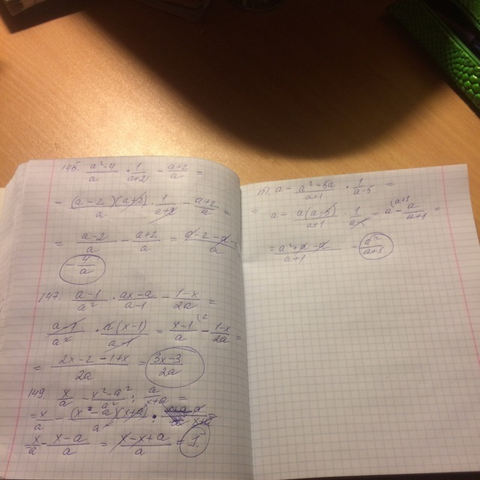 146. (a²-4)/a · 1/(a+2) - (a+2)/a =
= (a-2)(a+2)/a · 1/(a+2) - (a+2)/a =
= (a-2)/a - (a+2)/a = (a-2-a-2)/a =
-4/a
147. (a-1)/a² · (ax-a)/(a-1) - (1-x)/2a =
(a-1)/a² · a(x-1)/(a-1) = (x-1)/a - (1-x)/2a =
= (2x-2-1+x)/2a = (3x-3)/2a
149. x/a - (x²-a²)/a² : a/(x+a) =
= x/a - (x-a)(x+a)/a² · a/(x+a)
x/a - (x-a)/a = (x-x+a)/a = 1
151. a - (a²-5a)/(a+1) · 1/(a-5) =
= a - a(a-5)/(a+1) · 1/(a-5) = a - a/(a+1) =
= (a²+a-a)/(a+1) = a²/(a+1)